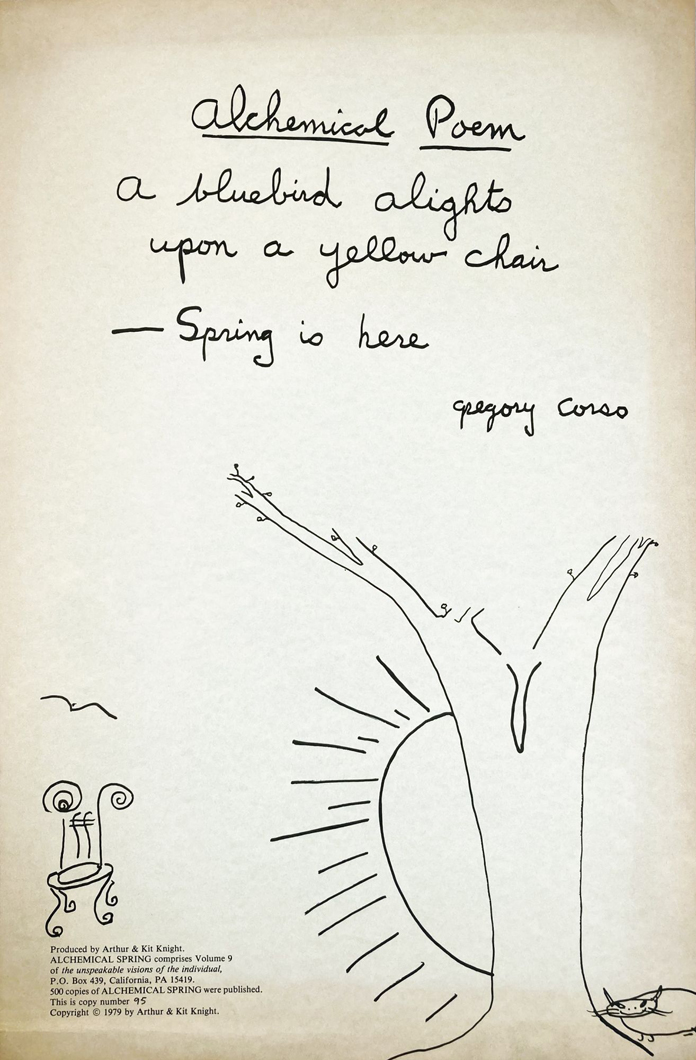 Alchemical Poem
a bluebird alights
upon a yellow chair
— Spring is here
gregory corso
Produced by Arthur & Kit Knight.
ALCHEMICAL SPRING comprises Volume 9
of the unspeakable visions of the individual,
P.O. Box 439, California, PA 15419.
500 copies of ALCHEMICAL SPRING were published.
This is copy number 95
Copyright © 1979 by Arthur & Kit Knight.